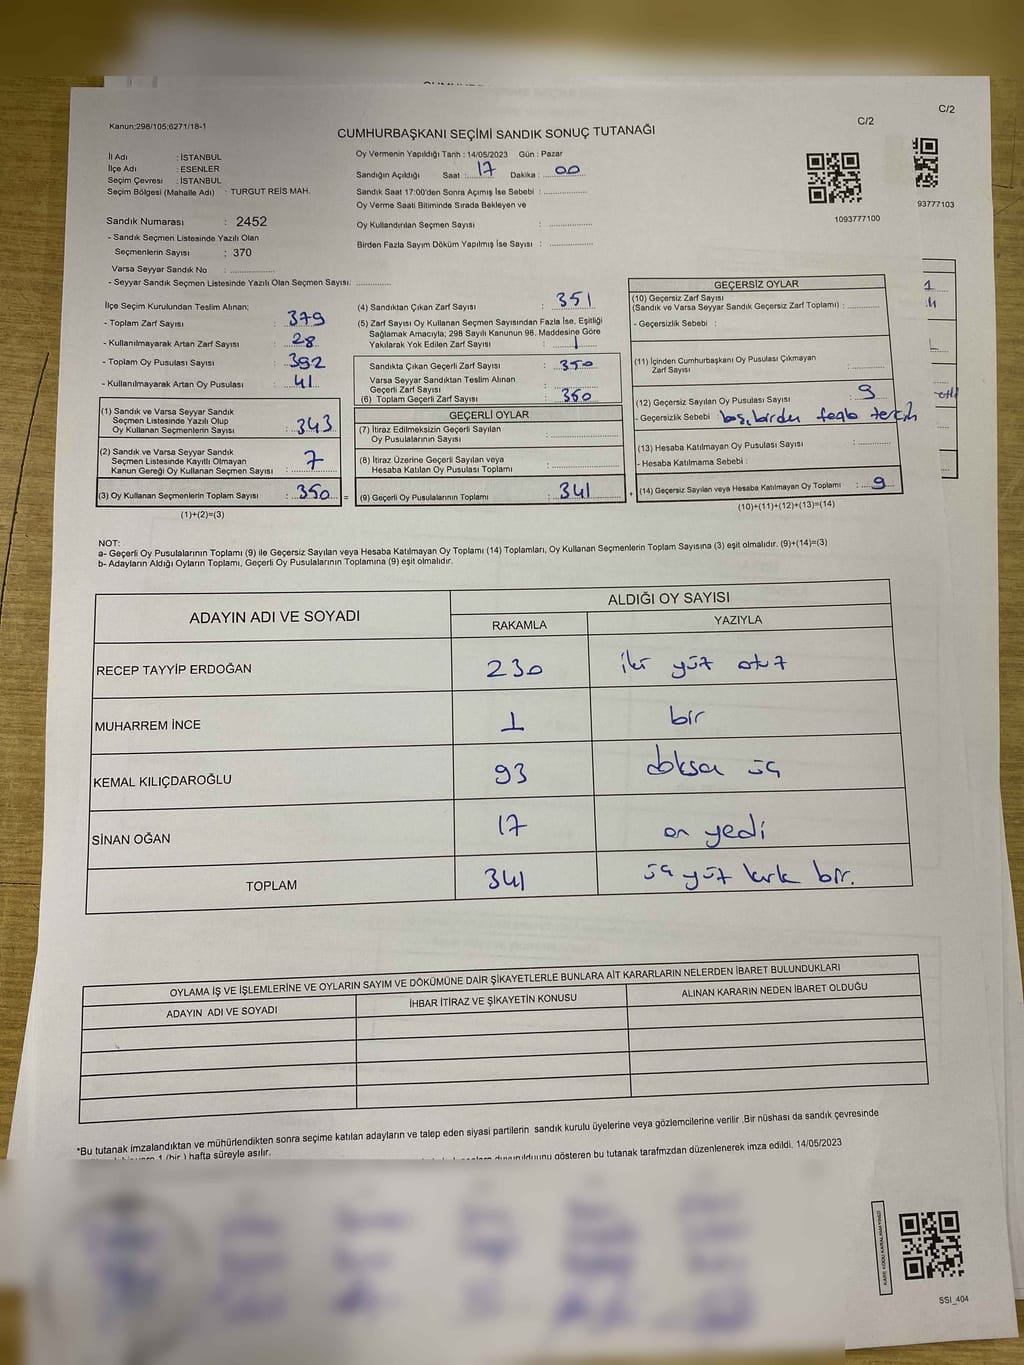 Kanun;298/105;6271/18-1
CUMHURBAŞKANI SEÇİMİ SANDIK SONUÇ TUTANAĞI
C/2
C/2
İl Adı : İSTANBUL
İlçe Adı : ESENLER
Seçim Çevresi : İSTANBUL
Seçim Bölgesi (Mahalle Adı) : TURGUT REİS MAH.
Oy Vermenin Yapıldığı Tarih : 14/05/2023 Gün : Pazar
Sandığın Açıldığı Saat : 17 Dakika : 00
Sandık Saat 17:00'den Sonra Açımış İse Sebebi :
Oy Verme Saati Bitiminde Sırada Bekleyen ve
Oy Kullandırılan Seçmen Sayısı :
Birden Fazla Sayım Döküm Yapılmış İse Sayısı :
1093777100
93777103
Sandık Numarası : 2452
- Sandık Seçmen Listesinde Yazılı Olan
Seçmenlerin Sayısı : 370
Varsa Seyyar Sandık No :
- Seyyar Sandık Seçmen Listesinde Yazılı Olan Seçmen Sayısı:
İlçe Seçim Kurulundan Teslim Alınan:
- Toplam Zarf Sayısı : 379
- Kullanılmayarak Artan Zarf Sayısı : 28
- Toplam Oy Pusulası Sayısı : 392
- Kullanılmayarak Artan Oy Pusulası : 41
(1) Sandık ve Varsa Seyyar Sandık
Seçmen Listesinde Yazılı Olup
Oy Kullanan Seçmenlerin Sayısı : 343
(2) Sandık ve Varsa Seyyar Sandık
Seçmen Listesinde Kayıtlı Olmayan
Kanun Gereği Oy Kullanan Seçmen Sayısı : 7
(3) Oy Kullanan Seçmenlerin Toplam Sayısı : 350 =
(1)+(2)=(3)
(4) Sandıktan Çıkan Zarf Sayısı : 351
(5) Zarf Sayısı Oy Kullanan Seçmen Sayısından Fazla İse, Eşitliği
Sağlamak Amacıyla; 298 Sayılı Kanunun 98. Maddesine Göre
Yakılarak Yok Edilen Zarf Sayısı : 1
Sandıkta Çıkan Geçerli Zarf Sayısı : 350
Varsa Seyyar Sandıktan Teslim Alınan
Geçerli Zarf Sayısı :
(6) Toplam Geçerli Zarf Sayısı : 350
GEÇERLİ OYLAR
(7) İtiraz Edilmeksizin Geçerli Sayılan
Oy Pusulalarının Sayısı :
(8) İtiraz Üzerine Geçerli Sayılan veya
Hesaba Katılan Oy Pusulası Toplamı :
(9) Geçerli Oy Pusulalarının Toplamı : 341 +
GEÇERSİZ OYLAR
(10) Geçersiz Zarf Sayısı
(Sandık ve Varsa Seyyar Sandık Geçersiz Zarf Toplamı) :
- Geçersizlik Sebebi :
(11) İçinden Cumhurbaşkanı Oy Pusulası Çıkmayan
Zarf Sayısı :
(12) Geçersiz Sayılan Oy Pusulası Sayısı : 9
- Geçersizlik Sebebi boş, birden fazla tercih
(13) Hesaba Katılmayan Oy Pusulası Sayısı :
- Hesaba Katılmama Sebebi :
(14) Geçersiz Sayılan veya Hesaba Katılmayan Oy Toplamı : 9
(10)+(11)+(12)+(13)=(14)
NOT:
a- Geçerli Oy Pusulalarının Toplamı (9) ile Geçersiz Sayılan veya Hesaba Katılmayan Oy Toplamı (14) Toplamları, Oy Kullanan Seçmenlerin Toplam Sayısına (3) eşit olmalıdır. (9)+(14)=(3)
b- Adayların Aldığı Oyların Toplamı, Geçerli Oy Pusulalarının Toplamına (9) eşit olmalıdır.
ADAYIN ADI VE SOYADI
ALDIĞI OY SAYISI
RAKAMLA YAZIYLA
RECEP TAYYİP ERDOĞAN 230 iki yüz otuz
MUHARREM İNCE 1 bir
KEMAL KILIÇDAROĞLU 93 doksan üç
SİNAN OĞAN 17 on yedi
TOPLAM 341 üç yüz kırk bir.
OYLAMA İŞ VE İŞLEMLERİNE VE OYLARIN SAYIM VE DÖKÜMÜNE DAİR ŞİKAYETLERLE BUNLARA AİT KARARLARIN NELERDEN İBARET BULUNDUKLARI
ADAYIN ADI VE SOYADI İHBAR İTİRAZ VE ŞİKAYETİN KONUSU ALINAN KARARIN NEDEN İBARET OLDUĞU
*Bu tutanak imzalandıktan ve mühürlendikten sonra seçime katılan adayların ve talep eden siyasi partilerin sandık kurulu üyelerine veya gözlemcilerine verilir .Bir nüshası da sandık çevresinde
1 (bir ) hafta süreyle asılır.
duyurulduğunu gösteren bu tutanak tarafmzdan düzenlenerek imza edildi. 14/05/2023
SSI_404